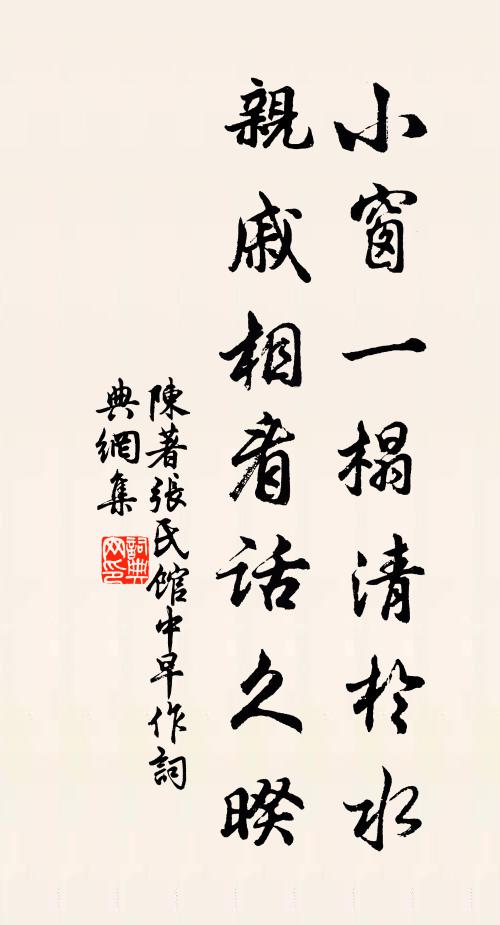 小窗一榻清於水
親戚相看話久暌
陳著張民館中早作詞
典網集
詞典网印